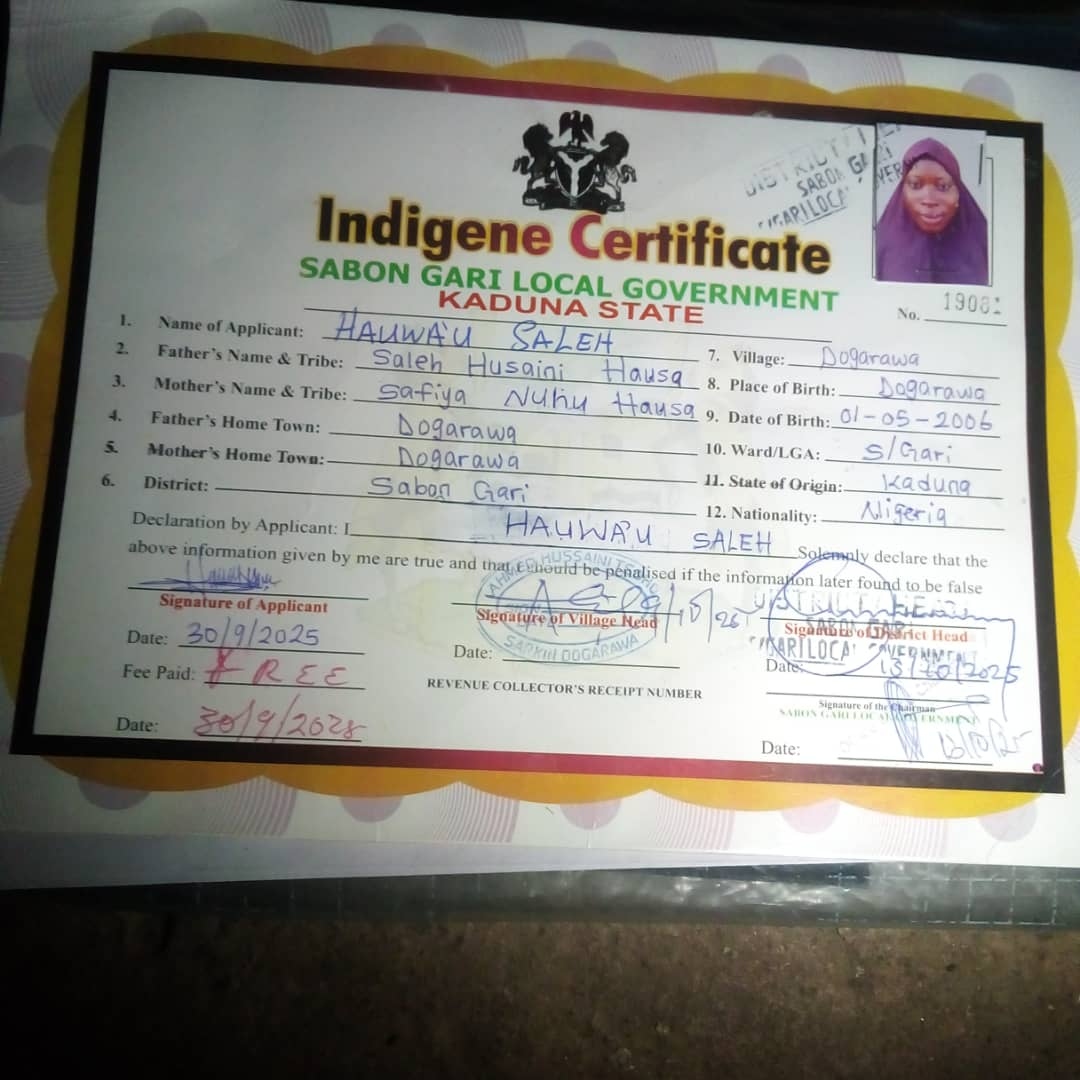 Indigene Certificate
SABON GARI LOCAL GOVERNMENT
KADUNA STATE
DISTRICT
SABON GARI
GARI LOCA
No. 19081
1. Name of Applicant: HAUWA'U SALEH
2. Father's Name & Tribe: Saleh Husaini Hausa
3. Mother's Name & Tribe: Safiya Nuhu Hausa
4. Father's Home Town: Dogarawa
5. Mother's Home Town: Dogarawa
6. District: Sabon Gari
7. Village: Dogarawa
8. Place of Birth: Dogarawa
9. Date of Birth: 01-05-2006
10. Ward/LGA: S/Gari
11. State of Origin: Kaduna
12. Nationality: Nigeria
Declaration by Applicant: I HAUWA'U SALEH Solemply declare that the
above information given by me are true and that I should be penalised if the information later found to be false
Signature of Applicant
Date: 30/9/2025
Fee Paid: FREE
Date: 30/9/2028
AHMED HUSSAINI
Signature of Village Head
SARKIN DOGARAWA
Date:
REVENUE COLLECTOR'S RECEIPT NUMBER
DISTRICT HEAD
SABON GARI
Signature of District Head
GARI LOCA GOVERNMENT
Date: 13/10/2025
Signature of the Chairman
SABON GARI LOCAL GOVERNMENT
Date: 13/10/25